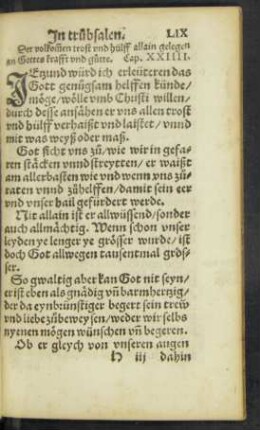 In trübsalen. LIX
Der volkomen trost vnd hülff allain gelegen
an Gottes krafft vnd güete. Cap. XXIIII.
IEtzund würd ich erleüteren das
Gott genügsam helffen künde/
möge/wölle vmb Christi willen/
durch desse ansähen er vns allen trost
vnd hülff verhaißt vnd laistet/vnnd
mit was weyß oder maß.
Got sicht vns zů/wie wir in gefa-
ren stäcken vnnd streytten/er waißt
am allerbasten wie vnd wenn vns zů-
raten vnnd zůhelffen/damit sein eer
vnd vnser hail gefürdert werde.
Nit allain ist er allwüssend/sonder
auch allmächtig. Wenn schon vnser
leyden ye lenger ye grösser wurde/ist
doch Got allwegen tausentmal grös-
ser.
So gwaltig aber kan Got nit seyn/
er ist eben als gnädig vñ barmhertzig/
der da eynbrünstiger begert sein trew
vnd liebe zůbeweysen/weder wir selbs
nyenen mögen wünschen vñ begeren.
Ob er gleych von vnseren augen
H iij dahin